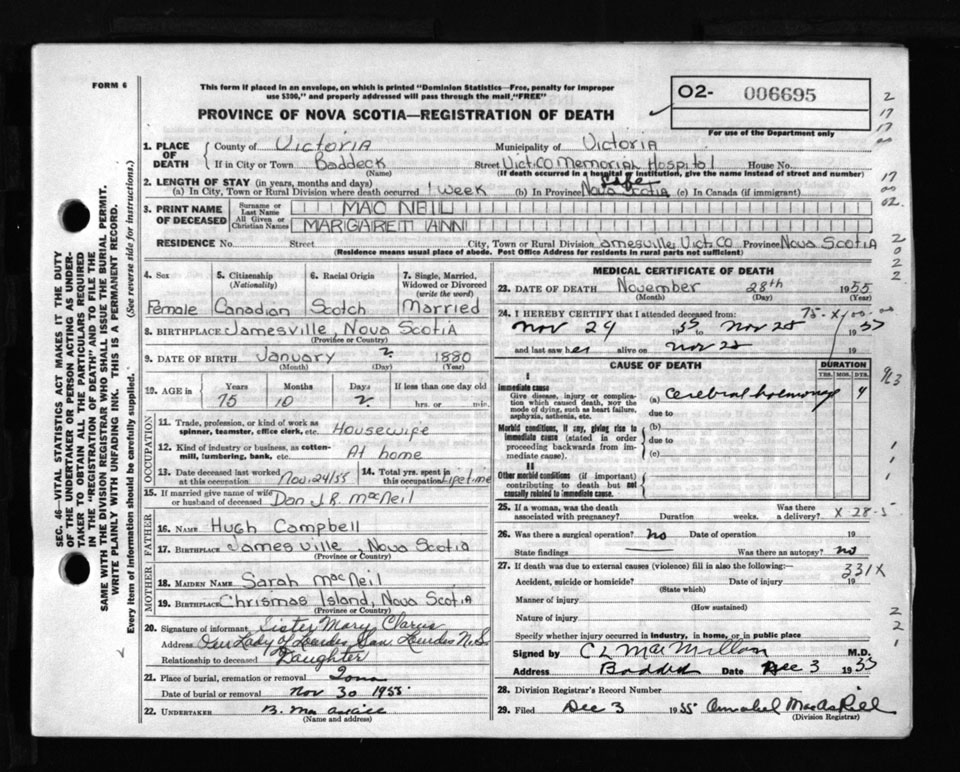 FORM 6
This form if placed in an envelope, on which is printed "Dominion Statistics—Free, penalty for improper
use $300," and properly addressed will pass through the mail "FREE"
PROVINCE OF NOVA SCOTIA—REGISTRATION OF DEATH
O2- 006695
For use of the Department only
1. PLACE OF DEATH County of Victoria Municipality of Victoria
If in City or Town Baddeck (Name) Street Vict.Co Memorial Hospital House No.
(If death occurred in a hospital or institution, give the name instead of street and number)
2. LENGTH OF STAY (in years, months and days)
(a) In City, Town or Rural Division where death occurred 1 week (b) In Province Life Nova Scotia (c) In Canada (if immigrant)
3. PRINT NAME OF DECEASED Surname or Last Name MAC NEIL
All Given or Christian Names MARGARET ANN
RESIDENCE No. Street City, Town or Rural Division Jamesville, Vict. Co Province Nova Scotia
(Residence means usual place of abode. Post Office Address for residents in rural parts not sufficient)
4. Sex Female
5. Citizenship (Nationality) Canadian
6. Racial Origin Scotch
7. Single, Married, Widowed or Divorced (write the word) Married
8. BIRTHPLACE Jamesville, Nova Scotia
(Province or Country)
9. DATE OF BIRTH January 2 1880
(Month) (Day) (Year)
10. AGE in Years 75 Months 10 Days 2 If less than one day old hrs. or min.
OCCUPATION
11. Trade, profession, or kind of work as spinner, teamster, office clerk, etc. Housewife
12. Kind of industry or business, as cotten-mill, lumbering, bank, etc. At home
13. Date deceased last worked at this occupation Nov. 24/55
14. Total yrs. spent in this occupation Lifetime
15. If married give name of wife or husband of deceased Dan J.R. MacNeil
FATHER
16. NAME Hugh Campbell
17. BIRTHPLACE Jamesville, Nova Scotia
(Province or Country)
MOTHER
18. MAIDEN NAME Sarah MacNeil
19. BIRTHPLACE Chrismas Island, Nova Scotia
(Province or Country)
20. Signature of informant Sister Mary Clarus
Address Our Lady of Lourdes Lourdes N.S.
Relationship to deceased Daughter
21. Place of burial, cremation or removal Iona
Date of burial or removal Nov 30 1955
22. UNDERTAKER B. Mac Askill
(Name and address)
MEDICAL CERTIFICATE OF DEATH
23. DATE OF DEATH November 28th 1955
(Month) (Day) (Year)
24. I HEREBY CERTIFY that I attended deceased from:
Nov 24 1955 to Nov 28 1955
and last saw her alive on Nov 28 19
CAUSE OF DEATH
DURATION
YRS. MOS. DYS.
I
Immediate cause
Give disease, injury or complication which caused death, nor the mode of dying, such as heart failure, asphyxia, asthenia, etc.
(a) Cerebral hemorrage 4
due to
Morbid conditions, if any, giving rise to immediate cause (stated in order proceeding backwards from immediate cause).
(b)
due to
(c)
II
Other morbid conditions (if important) contributing to death but not causally related to immediate cause.
25. If a woman, was the death associated with pregnancy? Duration weeks. Was there a delivery? X 28-5
26. Was there a surgical operation? no Date of operation 19
State findings Was there an autopsy? no
27. If death was due to external causes (violence) fill in also the following:— 331X
Accident, suicide or homicide? Date of injury 19
(State which)
Manner of injury
(How sustained)
Nature of injury
Specify whether injury occurred in industry, in home, or in public place
Signed by C L MacMillan M.D.
Address Baddeck Date Dec 3 1955
28. Division Registrar's Record Number
29. Filed Dec 3 1955 Annabel MacAskill
(Division Registrar)
SEC. 46—VITAL STATISTICS ACT MAKES IT THE DUTY
OF THE UNDERTAKER OR PERSON ACTING AS UNDER-
TAKER TO OBTAIN ALL THE PARTICULARS REQUIRED
IN THE "REGISTRATION OF DEATH" AND TO FILE THE
SAME WITH THE DIVISION REGISTRAR WHO SHALL ISSUE THE BURIAL PERMIT.
WRITE PLAINLY WITH UNFADING INK. THIS IS A PERMANENT RECORD.
Every item of information should be carefully supplied. (See reverse side for instructions.)